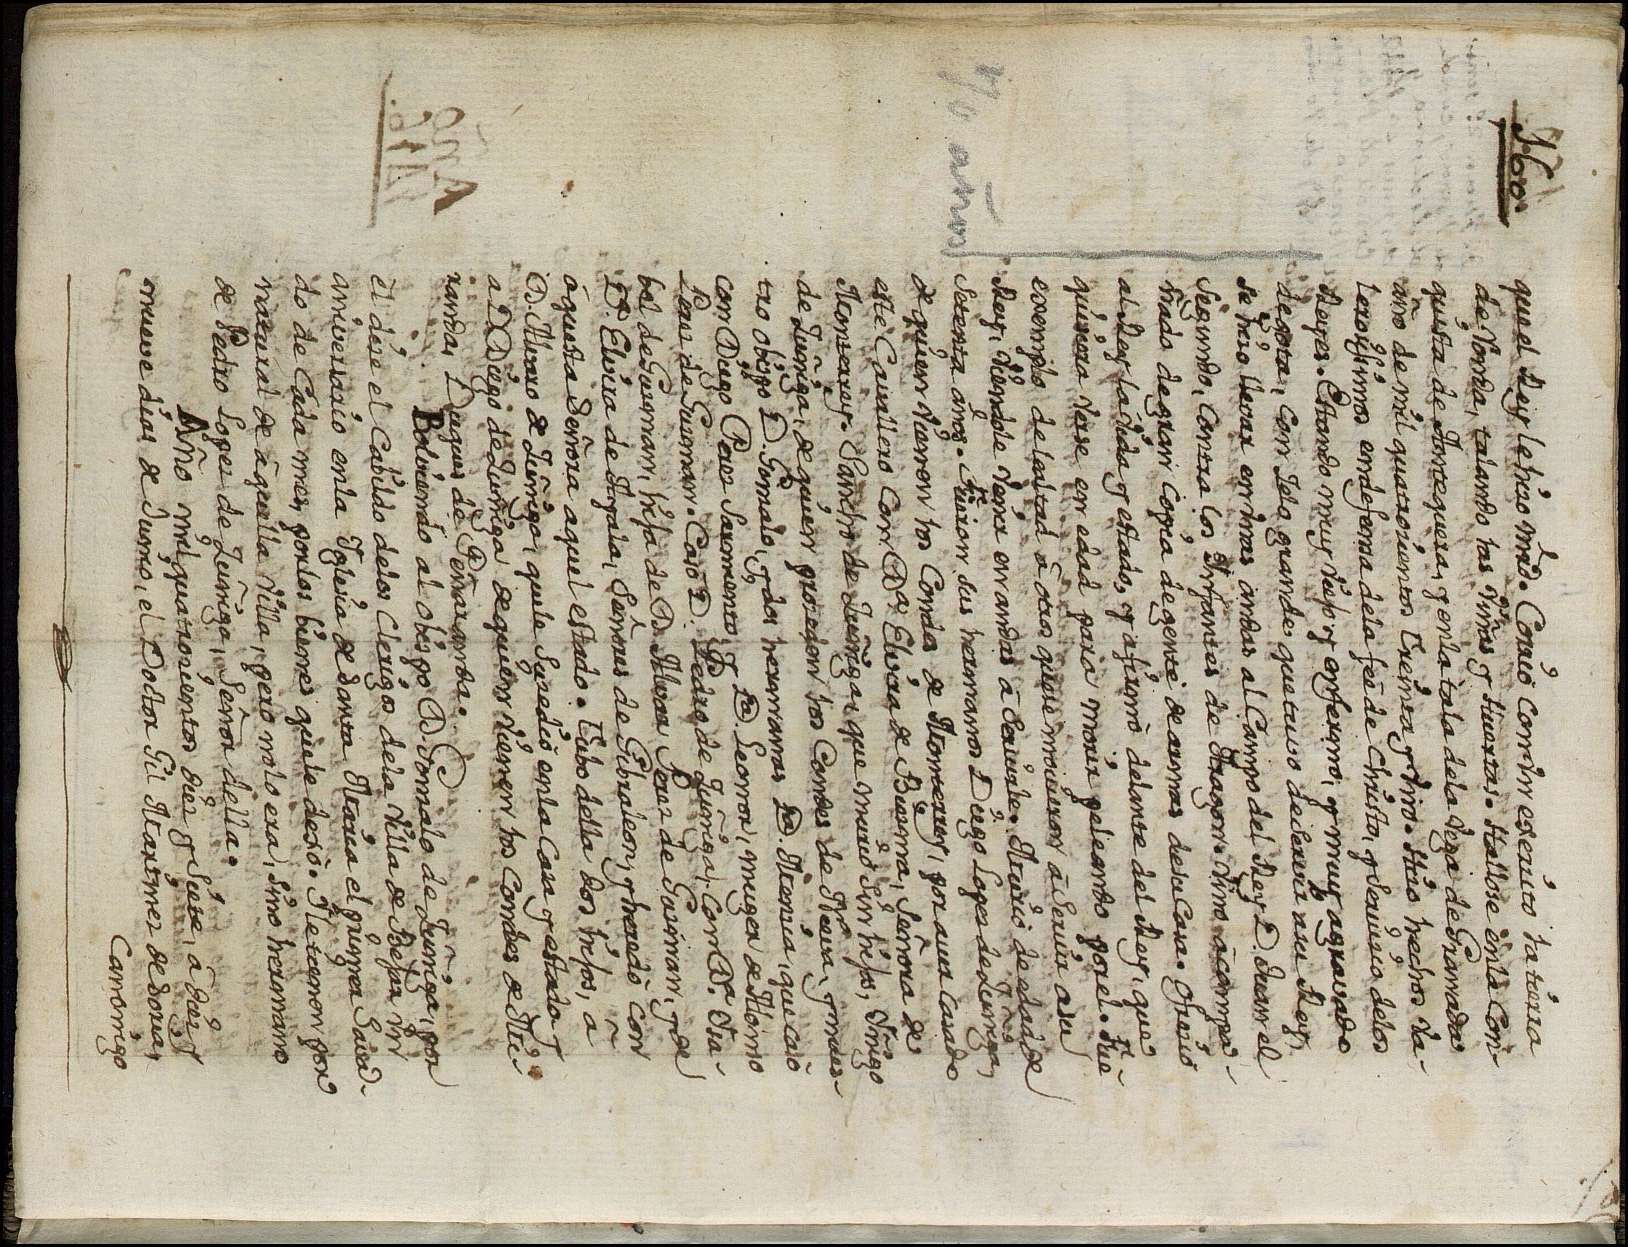 160.
que el Rey le hizo mrd. Corrió con un exerçito la tierra
de Ronda, talando las viñas y Huertas. Hallose en la Con-
quista de Antequera, y en la tala de la Vega de Granada
año de mil quatrocientos treinta y uno. Hizo hechos va-
lerosissimos en defensa de la fee de Christo, y servicio de los
Reyes. Estando muy viejo y enfermo, y muy agravado
de gota, con zelo grande que tuvo de servir a su Rey,
se hizo llevar en unas andas al Campo del Rey D. Juan el
segundo, contra los Infantes de Aragon. Vino acompa-
ñado de gran copia de gente de armas de su Casa. Ofreçio
al Rey la vida y estado, y afirmó delante del Rey, que
quisiera verse en edad para morir peleando por el. Fue
exemplo de lealtad a otros que se movieron a servir a su
Rey, viendole venir en andas a servirle. Murio de edad de
setenta años. Fueron sus hermanos Diego Lopez de Zuñiga,
de quien vienen los Condes de Monterrey, por aver Casado
este Cavallero con Da. Elvira de Biezma, Señora de
Monterrey. Sancho de Zuñiga, que murió sin hijos, Iñigo
de Zuñiga, de quien proceden los Condes de Nieva, y nues-
tro obispo D. Gonzalo, y dos hermanas Da. Mencia, que casó
con Diego Perez Sarmiento, y Da. Leonor, muger de Alonso
Perez de Guzman. Casó D. Pedro de Zuñiga, con Da. Isa-
bel de Guzman, hija de D. Alvar Perez de Guzman, y de
Da. Elvira de Ayala, Señores de Gibraleon, y heredó con
aquesta Señora aquel estado. Tubo della dos hijos, a
D. Alvaro de Zuñiga, que le sucedió en la Casa y estado, y
a D. Diego de Zuñiga, de quien vienen los Condes de Mi-
randa, Duques de Peñaranda.
Bolviendo al obispo D. Gonzalo de Zuñiga, por
el dize el Cabildo de los Clerigos de la Villa de Bejar un
aniversario en la Iglesia de Santa Maria el primer Saba-
do de Cada mes, por los bienes que le dexó. Y le tienen por
natural de aquella Villa, pero no lo era, sino hermano
de Pedro Lopez de Zuñiga, Señor della.
Año
1410.
Año mil quatrocientos diez y siete, a diez y
nueve dias de Junio, el Doctor Gil Martinez de Soria,
Canonigo
70 años